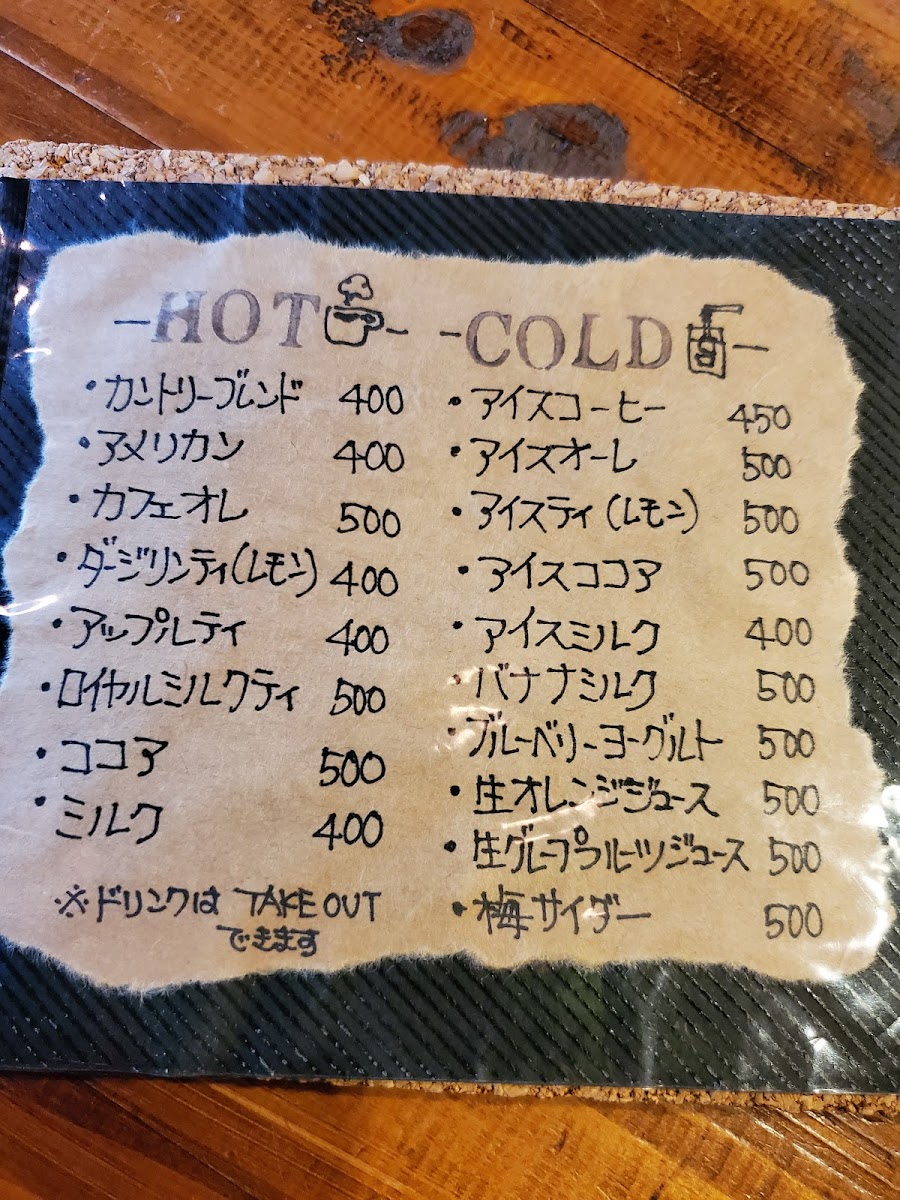 -HOT-
・カントリーブレンド 400
・アメリカン 400
・カフェオレ 500
・ダージリンティ(レモン) 400
・アップルティ 400
・ロイヤルミルクティ 500
・ココア 500
・ミルク 400
※ドリンクは TAKE OUT
できます
-COLD-
・アイスコーヒー 450
・アイスオーレ 500
・アイスティ(レモン) 500
・アイスココア 500
・アイスミルク 400
・バナナミルク 500
・ブルーベリーヨーグルト 500
・生オレンジジュース 500
・生グレープフルーツジュース 500
・梅サイダー 500